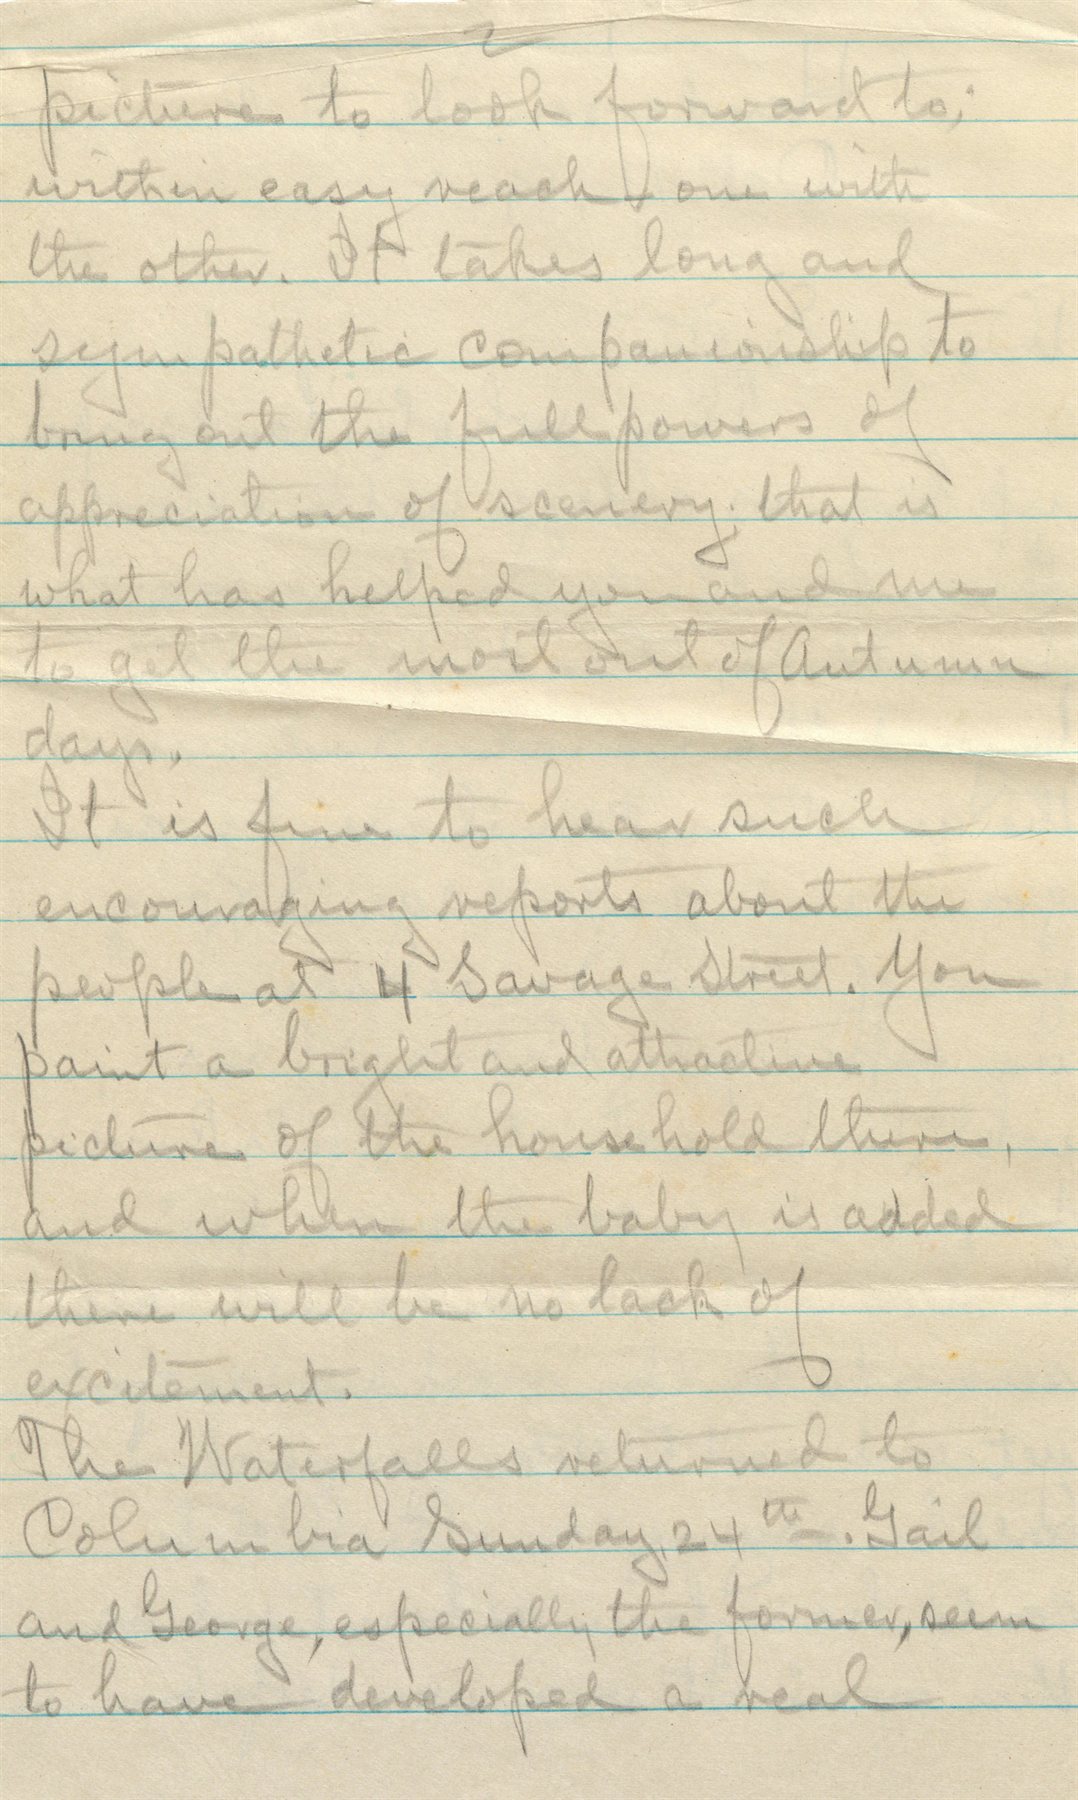 2
picture to look forward to;
within easy reach, one with
the other. It takes long and
sympathetic companionship to
bring out the full powers of
appreciation of scenery; that is
what has helped you and me
to get the most out of Autumn
days.
It is fine to hear such
encouraging reports about the
people at 4 Savage Street. You
paint a bright and attractive
picture of the household there,
and when the baby is added
there will be no lack of
excitement.
The Waterfalls returned to
Columbia Sunday 24th. Gail
and George, especially the former, seem
to have developed a real